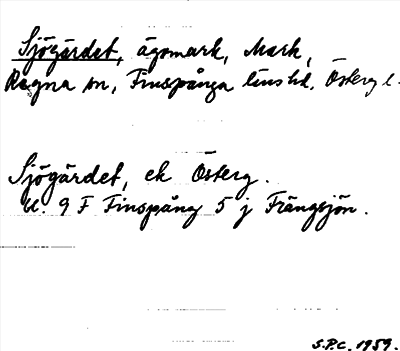 Sjögärdet, ägomark, Mark,
Regna sn, Finspånga länshd. Österg l.
Sjögärdet, ek Österg.
bl. 9 F Finspång 5 j Frängsjön.
S.P.C. 1959.